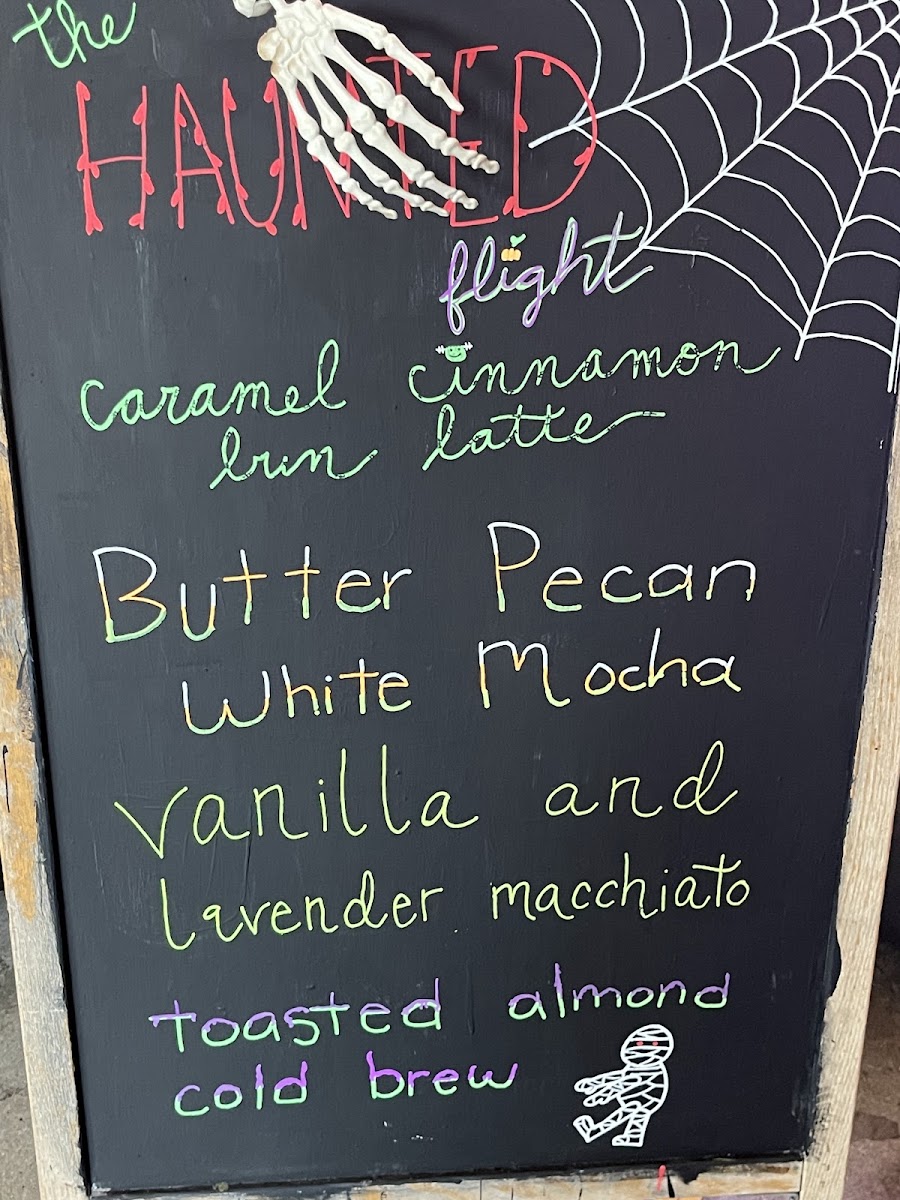 the
HAUNTED
flight
caramel cinnamon
bun latte
Butter Pecan
White Mocha
vanilla and
lavender macchiato
toasted almond
cold brew